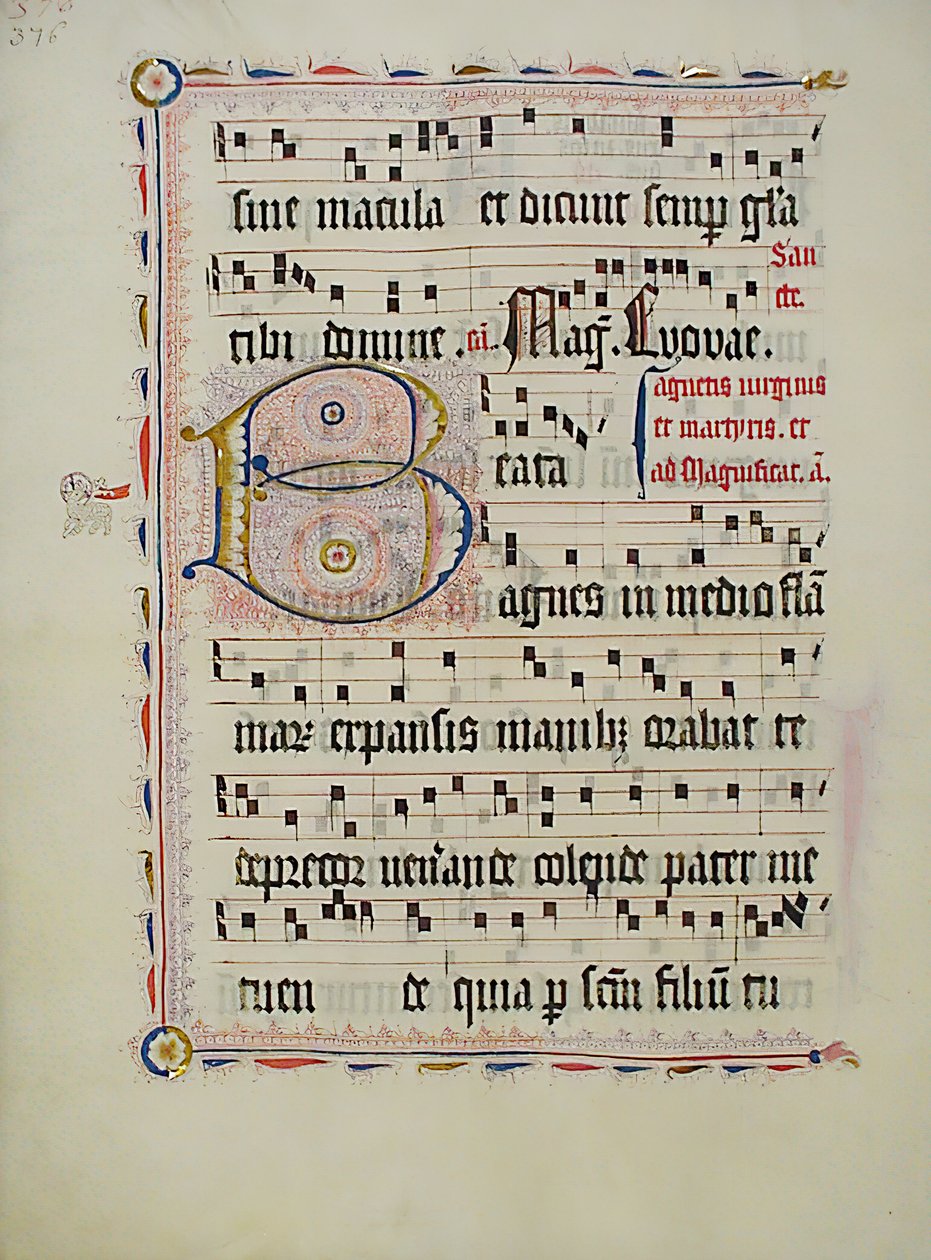 376
376
sine macula et dicunt semꝑ gl̃a
San
cte.
tibi domine . cã. Mag̃. Evovae.
agnetis uirginis
et martyris. et
ad Magnificat. ã.
Beata
agnes in medio flã
maꝝ expansis manibꝫ orabat te
deprecor uen̓ande colende pater me
tuen de quia ꝑ scm̃ filiũ tu